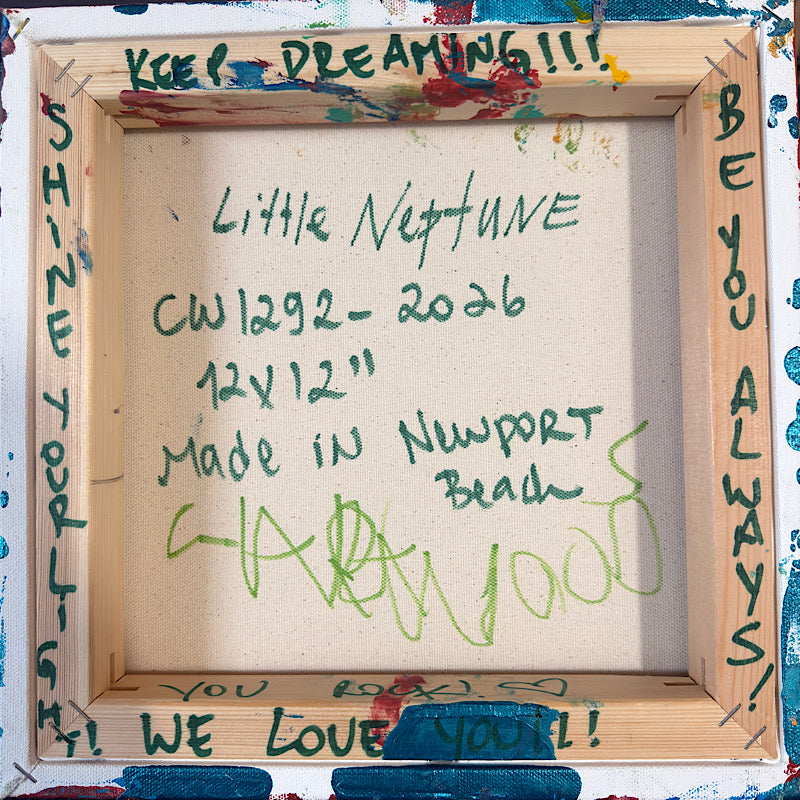 KEEP DREAMING!!!
SHINE YOUR LIGHT!
BE YOU ALWAYS!
Little NEptUNE
CW1292-2026
12x12"
Made iN NEWPORT
Beach
YOU ROCK! ♡
WE LOVE YOU!!!